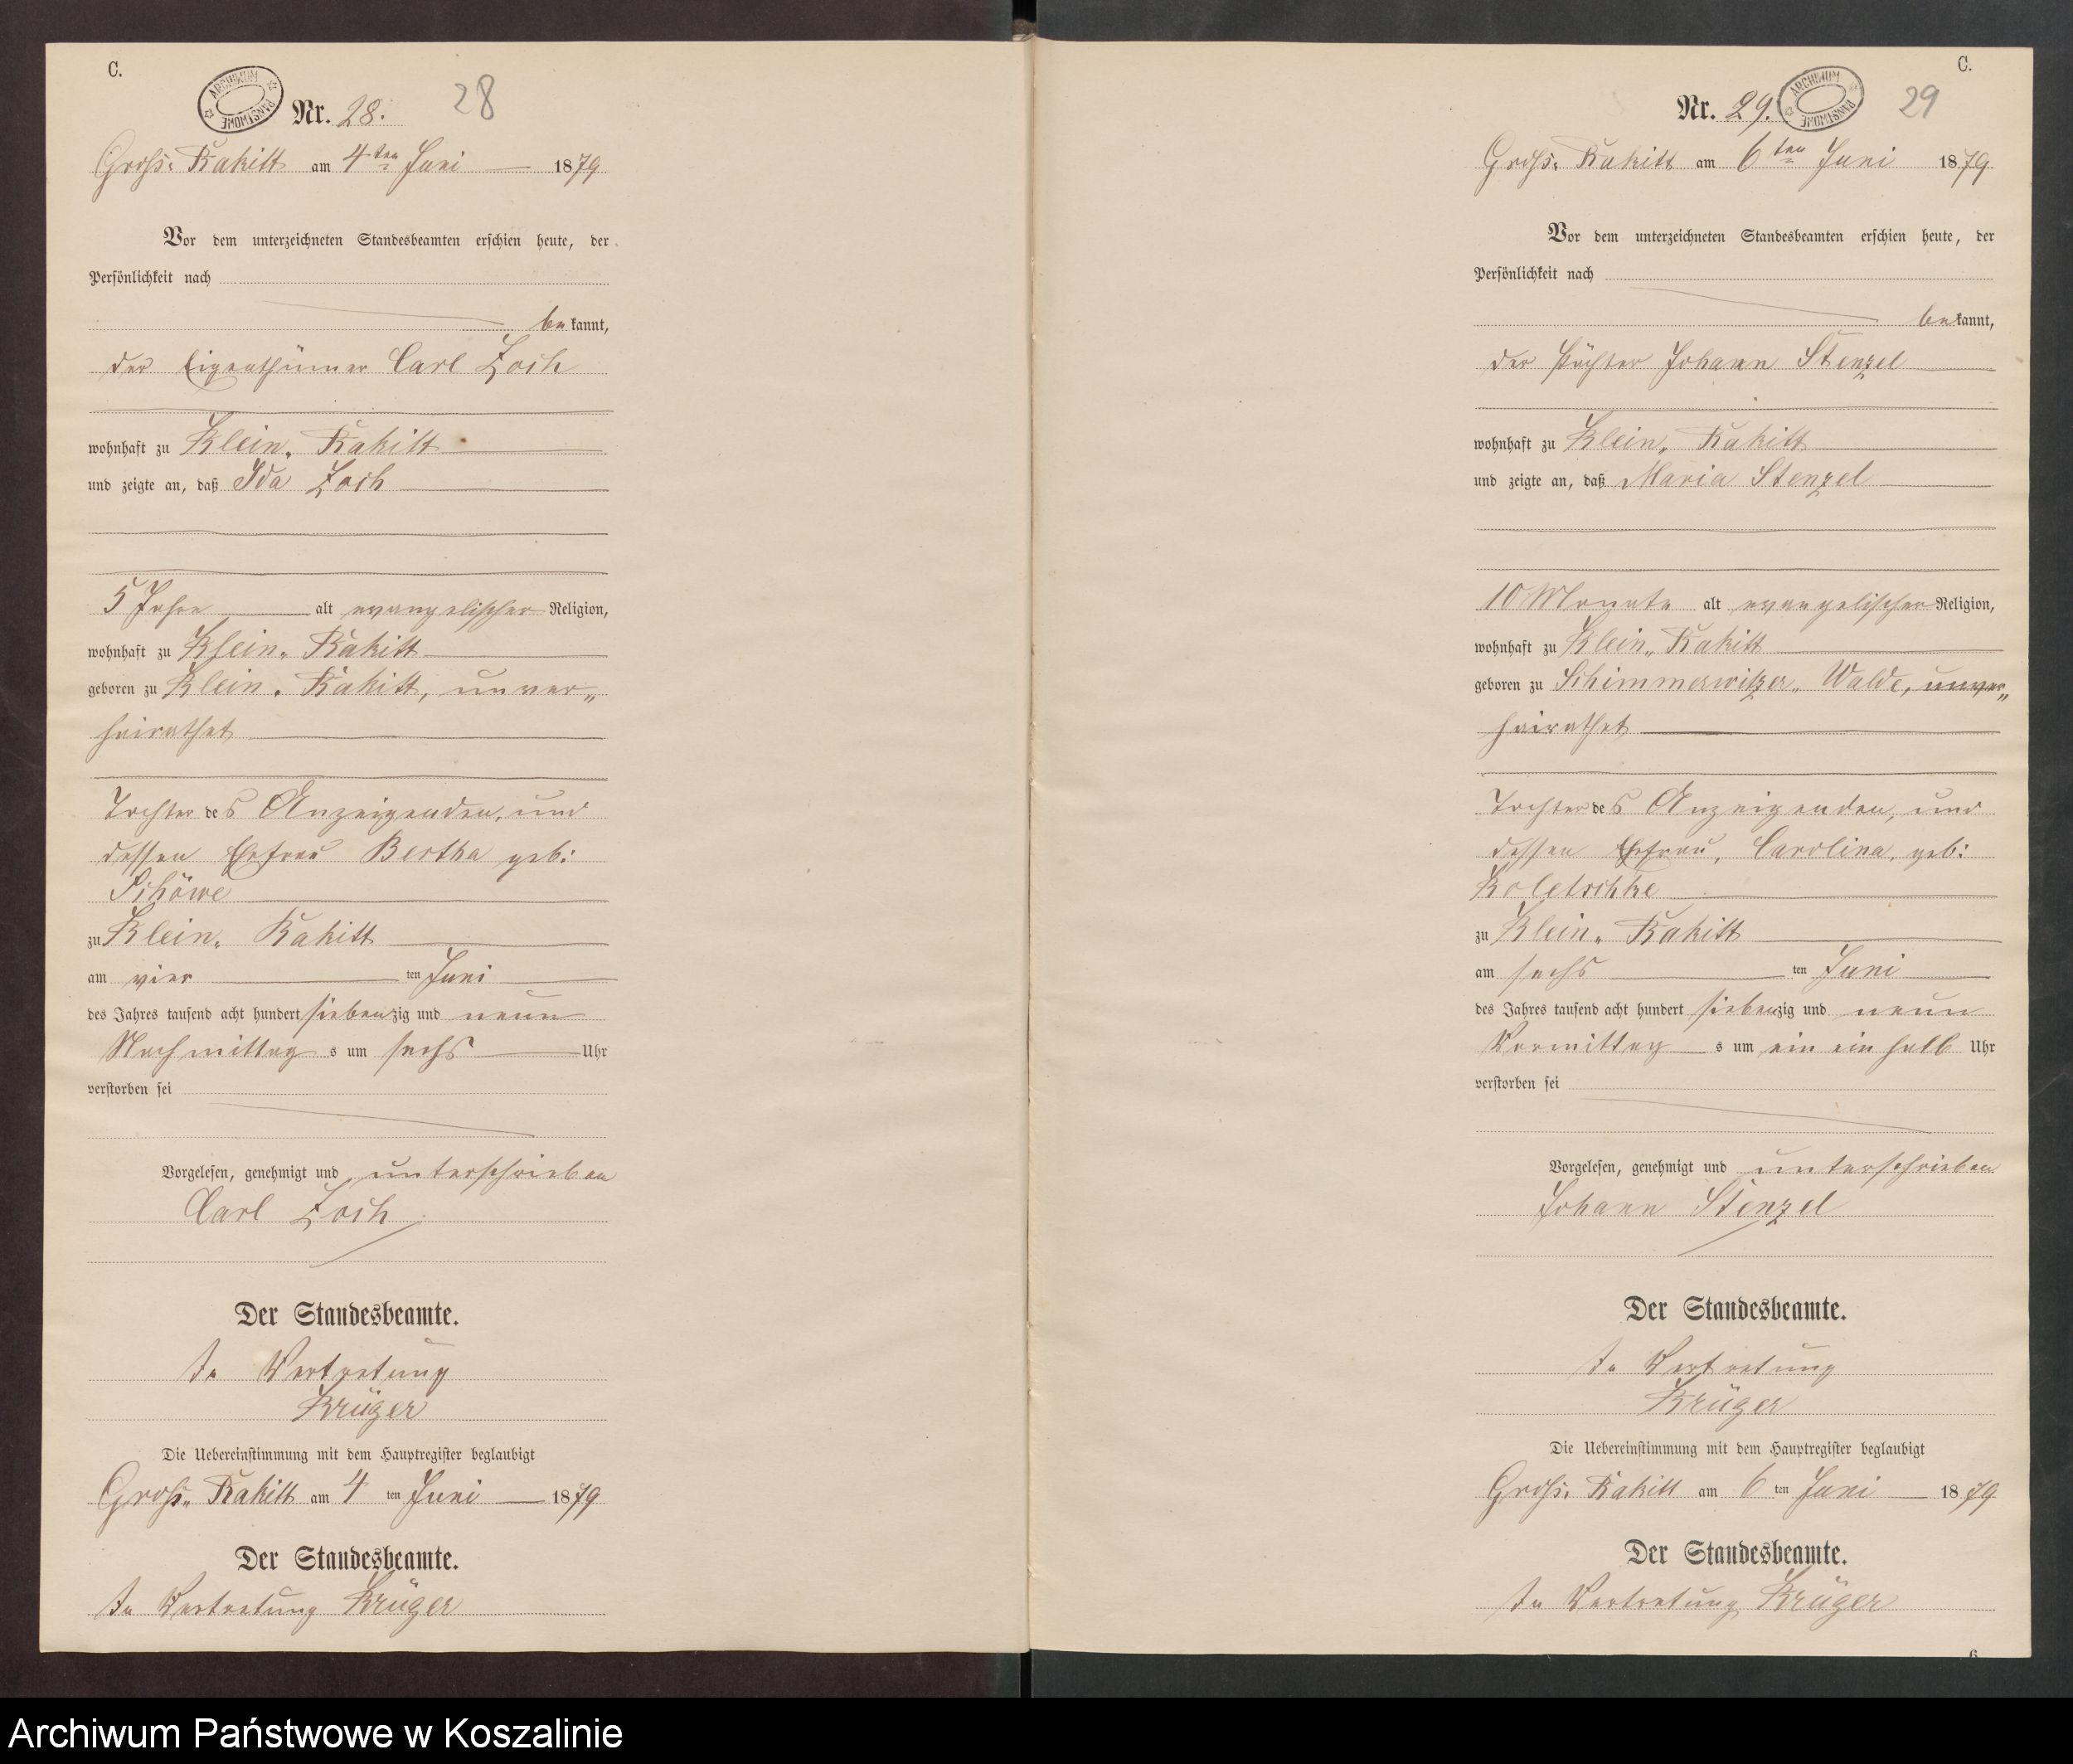 C.
ARCHIWUM PAŃSTWOWE
Nr. 28.
28
Groß- Rakitt am 4ten Juni 1879
Vor dem unterzeichneten Standesbeamten erschien heute, der
Persönlichkeit nach
bekannt,
der Eigenthümer Carl Zoch
wohnhaft zu Klein- Rakitt
und zeigte an, daß Ida Zoch
5 Jahre alt evangelischer Religion,
wohnhaft zu Klein- Rakitt
geboren zu Klein- Rakitt, unver-
heirathet
Tochter des Anzeigenden, und
dessen Ehefrau Bertha geb:
Schöwe
zu Klein- Rakitt
am vier ten Juni
des Jahres tausend acht hundert siebenzig und neun
Nachmittags um sechs Uhr
verstorben sei
Vorgelesen, genehmigt und unterschrieben
Carl Zoch
Der Standesbeamte.
In Vertretung
Krüger
Die Uebereinstimmung mit dem Hauptregister beglaubigt
Groß- Rakitt am 4 ten Juni 1879
Der Standesbeamte.
In Vertretung Krüger
C.
Nr. 29.
ARCHIWUM PAŃSTWOWE
29
Groß- Rakitt am 6ten Juni 1879
Vor dem unterzeichneten Standesbeamten erschien heute, der
Persönlichkeit nach
bekannt,
der Pächter Johann Stenzel
wohnhaft zu Klein- Rakitt
und zeigte an, daß Maria Stenzel
10 Monate alt evangelischer Religion,
wohnhaft zu Klein- Rakitt
geboren zu Schimmerwitzer- Walde, unver-
heirathet
Tochter des Anzeigenden, und
dessen Ehefrau, Carolina, geb:
Koletschke
zu Klein- Rakitt
am sechs ten Juni
des Jahres tausend acht hundert siebenzig und neun
Vormittags um ein ein halb Uhr
verstorben sei
Vorgelesen, genehmigt und unterschrieben
Johann Stenzel
Der Standesbeamte.
In Vertretung
Krüger
Die Uebereinstimmung mit dem Hauptregister beglaubigt
Groß- Rakitt am 6 ten Juni 1879
Der Standesbeamte.
In Vertretung Krüger
6
Archiwum Państwowe w Koszalinie